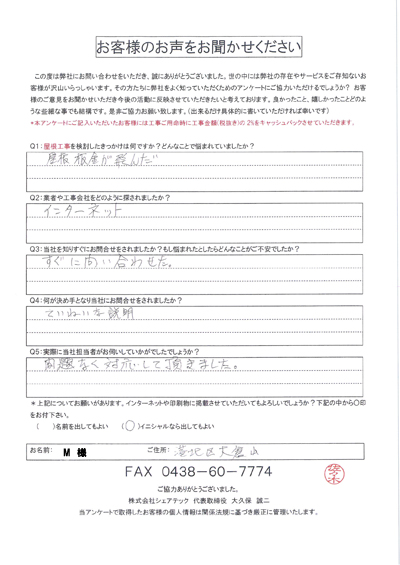 お客様のお声をお聞かせください
この度は弊社にお問い合わせをいただき、誠にありがとうございました。世の中には弊社の存在やサービスをご存知ないお
客様が沢山いらっしゃいます。その方たちに弊社をよく知っていただくためのアンケートにご協力いただけるでしょうか？ お客
様のご意見をお聞かせいただき今後の活動に反映させていただきたいと考えております。良かったこと、嬉しかったことどのよ
うな些細な事でも結構です。是非ご協力お願い致します。（出来るだけ具体的に書いていただければ幸いです）
*本アンケートにご記入いただいたお客様には工事ご用命時に工事金額（税抜き）の 2%をキャッシュバックさせていただきます。
Q1：屋根工事を検討したきっかけは何ですか？どんなことで悩まれていましたか？
屋根板金が飛んだ
Q2：業者や工事会社をどのように探されましたか？
インターネット
Q3：当社を知りすぐにお問合せをされましたか？もし悩まれたとしたらどんなことがご不安でしたか？
すぐに問い合わせた。
Q4：何が決め手となり当社にお問合せをされましたか？
ていねいな説明
Q5：実際に当社担当者がお伺いしていかがでしたでしょうか？
問題なく対応して頂きました。
*上記についてお願いがあります。インターネットや印刷物に掲載させていただいてもよろしいでしょうか？下記の中から〇印
をお付下さい。
（ ）名前を出してもよい （〇）イニシャルなら出してもよい
お名前： M 様 ご住所： 港北区大倉山
FAX 0438-60-7774
ご協力ありがとうございました。
株式会社シェアテック 代表取締役 大久保 誠二
当アンケートで取得したお客様の個人情報は関係法規に基づき厳正に管理いたします。